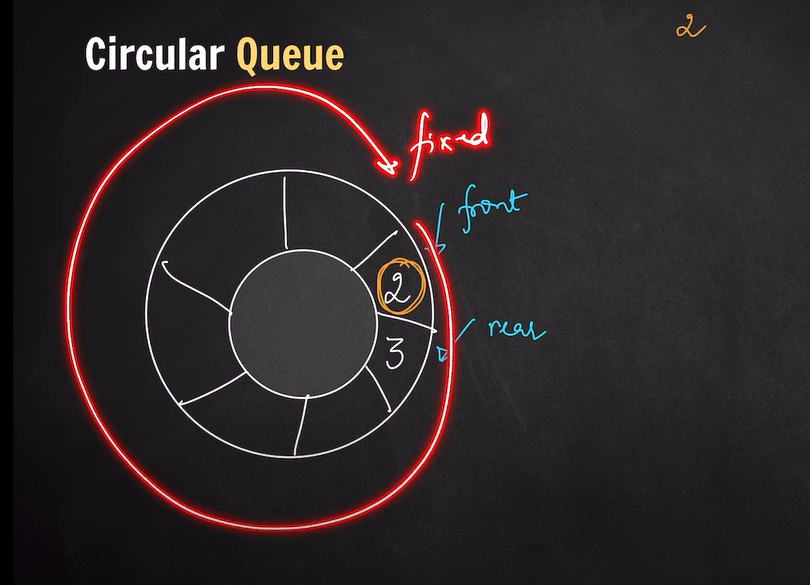 2
Circular Queue
fixed
front
2
rear
3